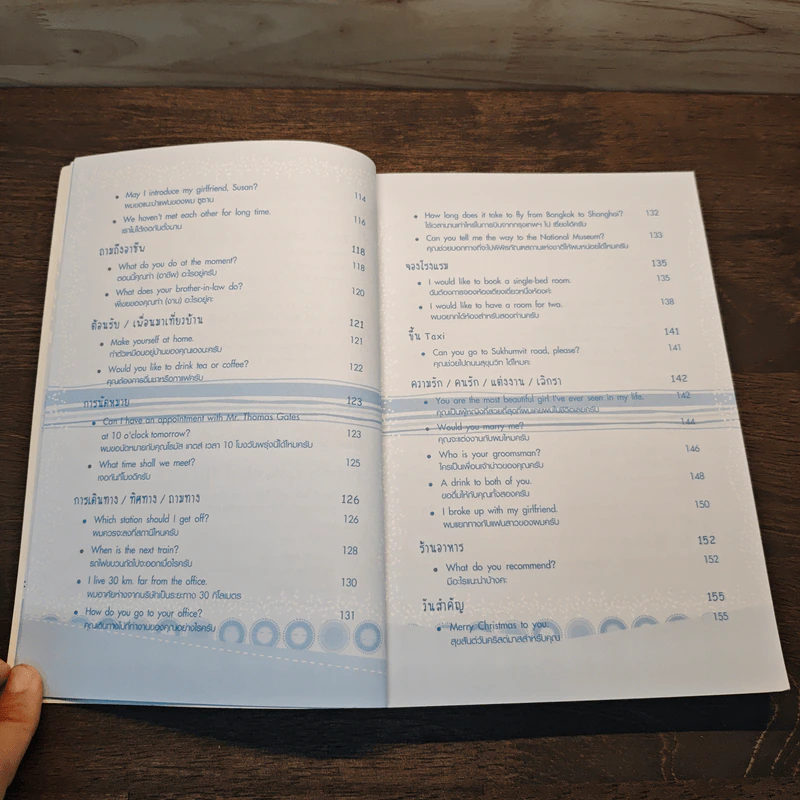 May I introduce my girlfriend, Susan? 114
ผมขอแนะนำแฟนของผม ซูซาน
We haven't met each other for long time. 116
เราไม่ได้เจอกันตั้งนาน
ถามถึงอาชีพ 118
What do you do at the moment? 118
ตอนนี้คุณทำ (อาชีพ) อะไรอยู่ครับ
What does your brother-in-law do? 120
พี่เขยของคุณทำ (งาน) อะไรอยู่คะ
ต้อนรับ / เพื่อนมาเที่ยวบ้าน 121
Make yourself at home. 121
ทำตัวเหมือนอยู่บ้านของคุณเองนะครับ
Would you like to drink tea or coffee? 122
คุณต้องการดื่มชาหรือกาแฟครับ
การนัดหมาย 123
Can I have an appointment with Mr. Thomas Gates
at 10 o'clock tomorrow? 123
ผมขอนัดหมายกับคุณโธมัส เกตส์ เวลา 10 โมงวันพรุ่งนี้ได้ไหมครับ
What time shall we meet? 125
เจอกันกี่โมงดีครับ
การเดินทาง / ทิศทาง / ถามทาง 126
Which station should I get off? 126
ผมควรจะลงที่สถานีไหนครับ
When is the next train? 128
รถไฟขบวนถัดไปจะออกเมื่อไรครับ
I live 30 km. far from the office. 130
ผมอาศัยห่างจากบริษัทเป็นระยะทาง 30 กิโลเมตร
How do you go to your office? 131
คุณเดินทางไปที่ทำงานของคุณอย่างไรครับ
How long does it take to fly from Bangkok to Shanghai? 132
ใช้เวลานานเท่าไหร่ในการบินจากกรุงเทพฯ ไป เซี่ยงไฮ้ครับ
Can you tell me the way to the National Museum? 133
คุณช่วยบอกทางที่จะไปพิพิธภัณฑสถานแห่งชาติให้ผมหน่อยได้ไหมครับ
จองโรงแรม 135
I would like to book a single-bed room. 135
ฉันต้องการจองห้องเตียงเดี่ยวหนึ่งห้องค่ะ
I would like to have a room for two. 138
ผมอยากได้ห้องสำหรับสองท่านครับ
ขึ้น Taxi 141
Can you go to Sukhumvit road, please? 141
คุณช่วยไปถนนสุขุมวิท ได้ไหมคะ
ความรัก / คนรัก / แต่งงาน / เลิกรา 142
You are the most beautiful girl I've ever seen in my life. 142
คุณเป็นผู้หญิงที่สวยที่สุดที่ผมเคยพบในชีวิตเลยครับ
Would you marry me? 144
คุณจะแต่งงานกับผมไหมครับ
Who is your groomsman? 146
ใครเป็นเพื่อนเจ้าบ่าวของคุณครับ
A drink to both of you. 148
ขอดื่มให้กับคุณทั้งสองครับ
I broke up with my girlfriend. 150
ผมแยกทางกับแฟนสาวของผมครับ
ร้านอาหาร 152
What do you recommend? 152
มีอะไรแนะนำบ้างคะ
วันสำคัญ 155
Merry Christmas to you. 155
สุขสันต์วันคริสต์มาสสำหรับคุณ